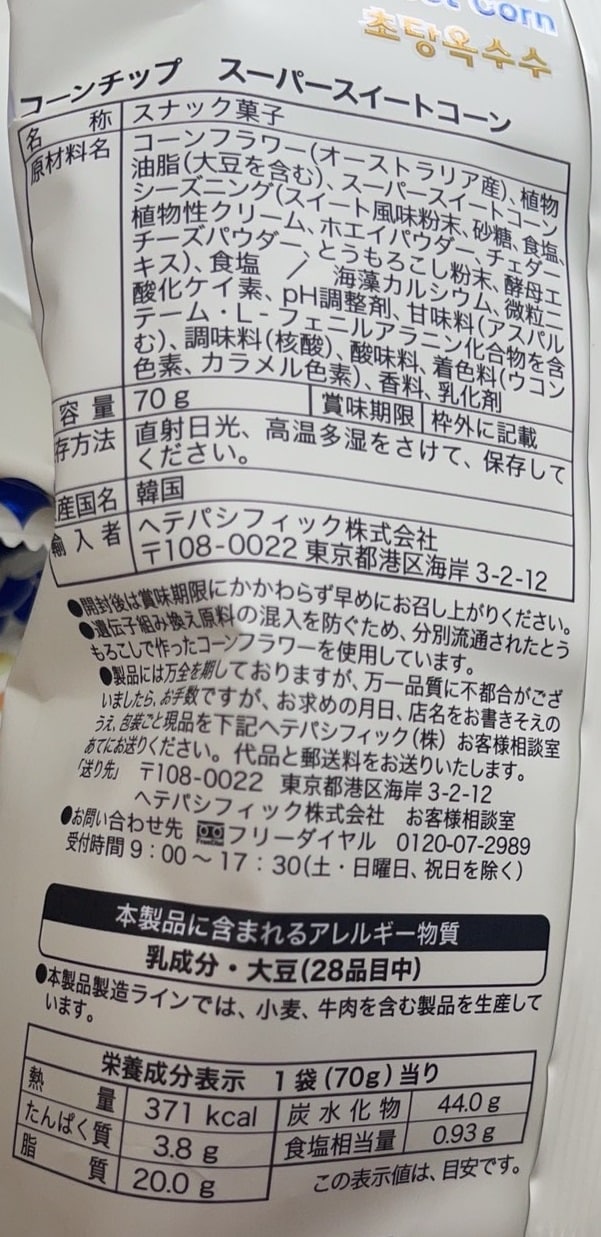 Corn
초당옥수수
コーンチップ スーパースイートコーン
名 称 スナック菓子
原材料名 コーンフラワー(オーストラリア産)、植物
油脂(大豆を含む)、スーパースイートコーン
シーズニング(スイート風味粉末、砂糖、食塩、
植物性クリーム、ホエイパウダー、チェダー
チーズパウダー、とうもろこし粉末、酵母エ
キス)、食塩 / 海藻カルシウム、微粒二
酸化ケイ素、pH調整剤、甘味料(アスパル
テーム・L-フェニルアラニン化合物を含
む)、調味料(核酸)、酸味料、着色料(ウコン
色素、カラメル色素)、香料、乳化剤
容量 70g 賞味期限 枠外に記載
存方法 直射日光、高温多湿をさけて、保存して
ください。
産国名 韓国
輸入者 ヘテパシフィック株式会社
〒108-0022 東京都港区海岸 3-2-12
●開封後は賞味期限にかかわらず早めにお召し上がりください。
●遺伝子組み換え原料の混入を防ぐため、分別流通されたとう
もろこしで作ったコーンフラワーを使用しています。
●製品には万全を期しておりますが、万一品質に不都合がござ
いましたら、お手数ですが、お求めの月日、店名をお書きそえの
うえ、包装ごと現品を下記ヘテパシフィック(株) お客様相談室
あてにお送りください。代品と郵送料をお送りいたします。
「送り先」 〒108-0022 東京都港区海岸 3-2-12
ヘテパシフィック株式会社 お客様相談室
●お問い合わせ先 フリーダイヤル 0120-07-2989
受付時間 9:00～17:30(土・日曜日、祝日を除く)
本製品に含まれるアレルギー物質
乳成分・大豆(28品目中)
●本製品製造ラインでは、小麦、牛肉を含む製品を生産して
います。
栄養成分表示 1袋(70g)当り
熱量 371 kcal 炭水化物 44.0g
たんぱく質 3.8 g 食塩相当量 0.93g
脂質 20.0 g この表示値は、目安です。